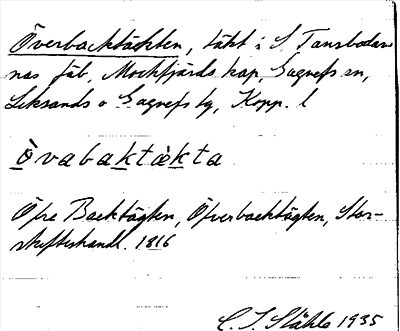 Överbacktäkten, täkt i S. Tansbodar-
nas fäb., Mockfjärds kap., Gagnefs sn,
Leksands o Gagnefs tg, Kopp. l
Òvabaktàkta
Öfre Backtägten, Öfverbacktägten, Stor-
skifteshandl. 1816
C. I. Ståhle 1935